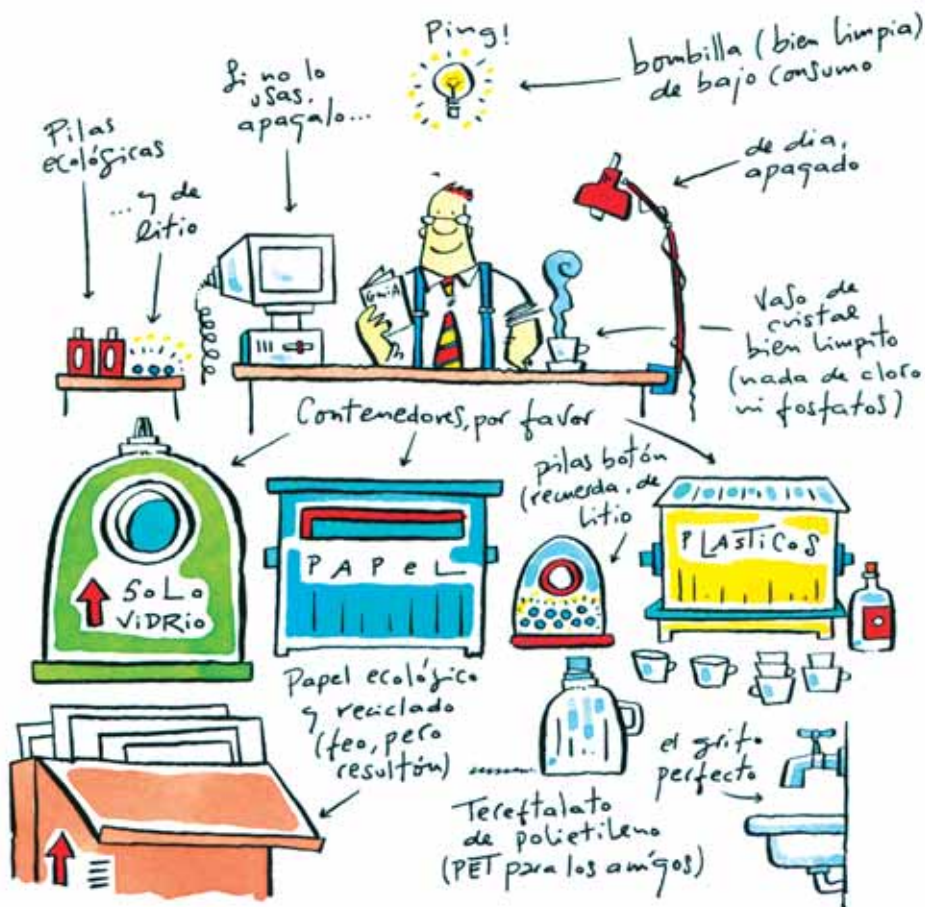 Ping!
bombilla (bien limpia)
de bajo consumo
Si no lo
usas,
apagalo...
Pilas
ecológicas
...y de
litio
de dia,
apagado
GuiA
Vaso de
cristal
bien limpito
(nada de cloro
ni fosfatos)
Contenedores, por favor
pilas botón
(recuerda, de
litio
SoLo
ViDRio
PAPeL
PLASTiCoS
Papel ecológico
y reciclado
(feo, pero
resultón)
el grifo
perfecto
Tereftalato
de polietileno
(PET para los amigos)